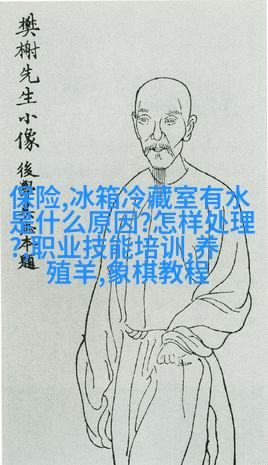 樊榭先生小像
後學本題
保险,冰箱冷藏室有水
是什么原因?怎样处理
?,职业技能培训,养
殖羊,象棋教程